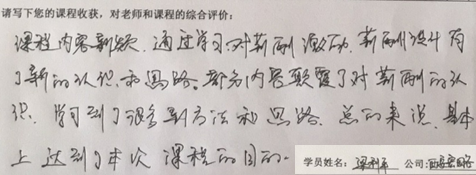 请写下您的课程收获，对老师和课程的综合评价：
课程内容新颖，通过学习对薪酬激励、薪酬设计有
了新的认识和思路，部分内容颠覆了对薪酬的认
识，学习到了很多新方法和思路，总的来说，基本
上达到了本次课程的目的。
学员姓名： 公司：